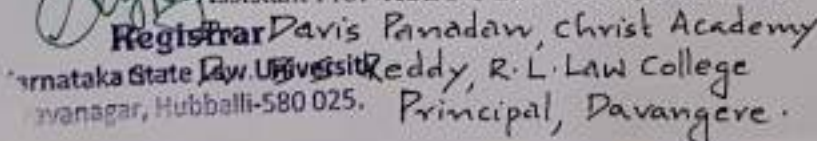 Registrar Davis Panadan, Christ Academy
arnataka State Law University Reddy, R.L. Law College
avanagar, Hubballi-580 025. Principal, Davangere.